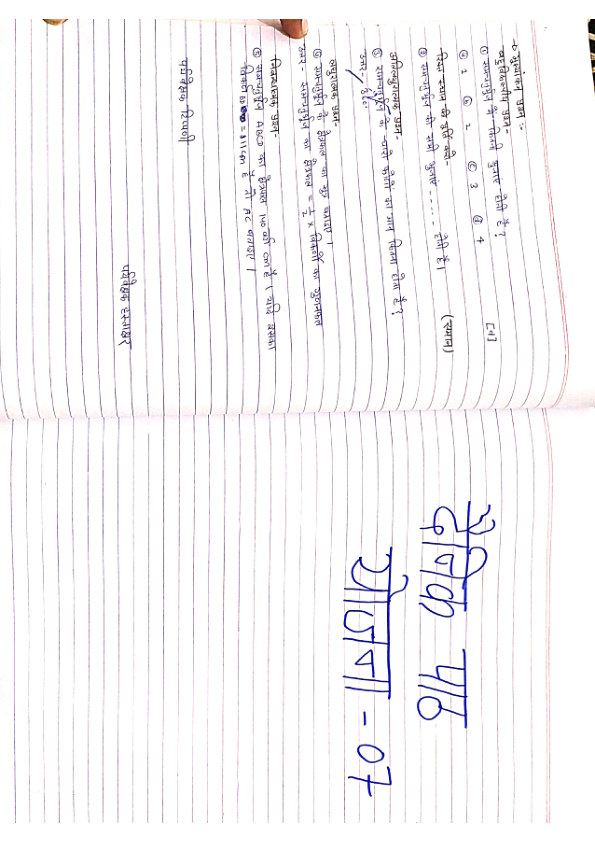 → मूल्यांकन प्रश्न :-
बहुविकल्पीय प्रश्न-
① समचतुर्भुज के कितनी भुजाएं होती है? [4]
ⓐ 1 ⓑ 2 ⓒ 3 ⓓ 4
रिक्त स्थान की पूर्ति करो-
② समचतुर्भुज की सभी भुजाएं - - - - - होती है। (समान)
अतिलघुरात्मक प्रश्न-
③ समचतुर्भुज के चारों कोनों का मान कितना होता है?
उत्तर-
लघुरात्मक प्रश्न-
④ समचतुर्भुज के क्षेत्रफल का सूत्र बताओ।
उत्तर- समचतुर्भुज का क्षेत्रफल = 1/2 × विकर्णों का गुणनफल
निबन्धात्मक प्रश्न-
⑤ समचतुर्भुज ABCD का क्षेत्रफल 140 वर्ग cm है। यदि इसका
विकर्ण BD = 11 cm है तो AC बताओ।
पर्यवेक्षक टिप्पणी
पर्यवेक्षक हस्ताक्षर
दैनिक पाठ
योजना - 07